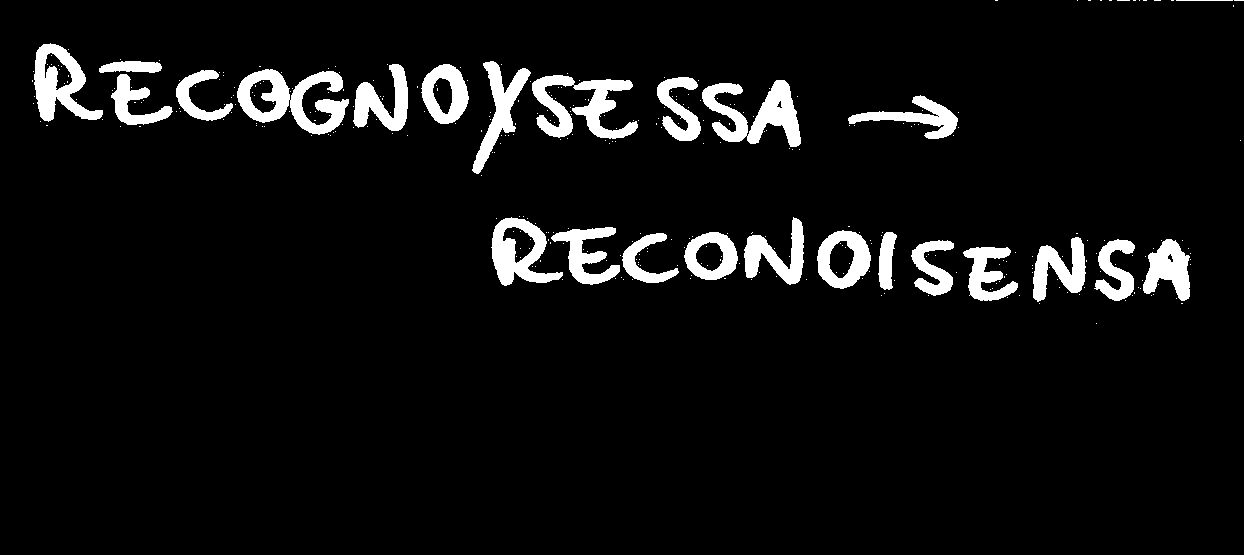 RECOGNOYSESSA →
RECONOISENSA